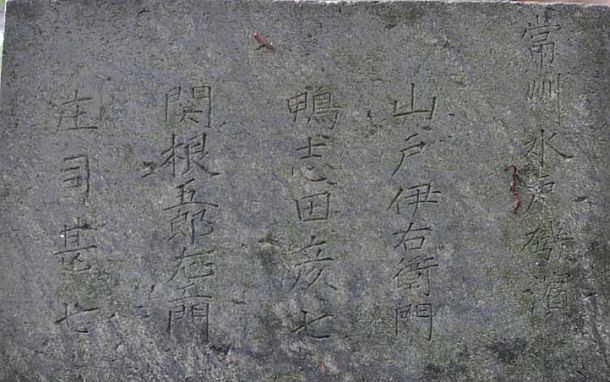 常州水戸磯濱
山戸伊右衛門
鴨志田彦七
関根五郎左エ門
庄司甚七